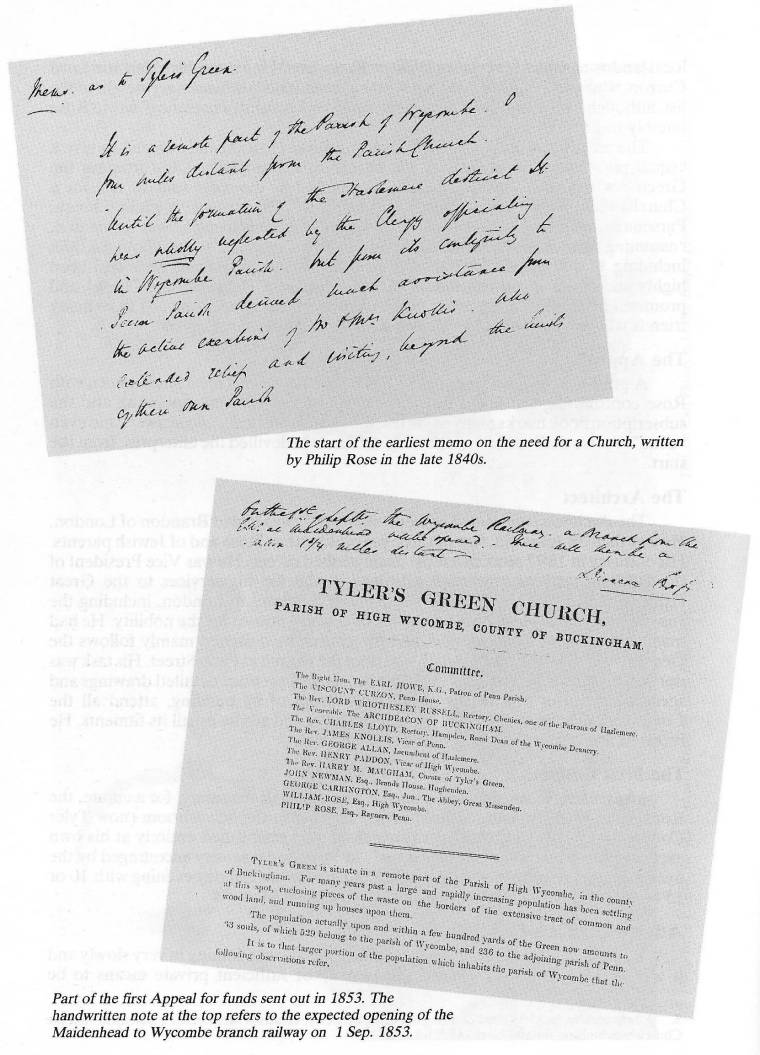 Memo. as to Tylers Green.
It is a remote part of the Parish of Wycombe.
four miles distant from the Parish Church.
Until the formation of the Hazlemere district it
was wholly neglected by the Clergy officiating
in Wycombe Parish. but from its contiguity to
Penn Parish derived much assistance from
the active exertions of Mr & Mrs Knollis. who
extended relief and visiting, beyond the limits
of their own Parish
The start of the earliest memo on the need for a Church, written
by Philip Rose in the late 1840s.
On the 1st of Septr. the Wycombe Railway. a branch from the
at Maidenhead will be opened. There will then be a
miles distant
TYLER'S GREEN CHURCH,
PARISH OF HIGH WYCOMBE, COUNTY OF BUCKINGHAM.
Committee.
The Right Hon. The EARL HOWE, K.G., Patron of Penn Parish.
The VISCOUNT CURZON, Penn House.
The Rev. LORD WRIOTHESLEY RUSSELL, Rectory, Chenies, one of the Patrons of Hazlemere.
The Venerable The ARCHDEACON OF BUCKINGHAM.
The Rev. CHARLES LLOYD, Rectory, Hampden, Rural Dean of the Wycombe Deanery.
The Rev. JAMES KNOLLIS, Vicar of Penn.
The Rev. GEORGE ALLAN, Incumbent of Hazlemere.
The Rev. HENRY PADDON, Vicar of High Wycombe.
The Rev. HARRY M. MAUGHAM, Curate of Tyler's Green.
JOHN NEWMAN, Esq., Brands House, Hughenden.
GEORGE CARRINGTON, Esq., Jun., The Abbey, Great Missenden.
WILLIAM ROSE, Esq., High Wycombe.
PHILIP ROSE, Esq., Rayners, Penn.
TYLER'S GREEN is situate in a remote part of the Parish of High Wycombe, in the county
of Buckingham. For many years past a large and rapidly increasing population has been settling
at this spot, enclosing pieces of the waste on the borders of the extensive tract of common and
wood land, and running up houses upon them.
The population actually upon and within a few hundred yards of the Green now amounts to
63 souls, of which 529 belong to the parish of Wycombe, and 236 to the adjoining parish of Penn.
It is to that larger portion of the population which inhabits the parish of Wycombe that the
following observations refer.
Part of the first Appeal for funds sent out in 1853. The
handwritten note at the top refers to the expected opening of the
Maidenhead to Wycombe branch railway on 1 Sep. 1853.